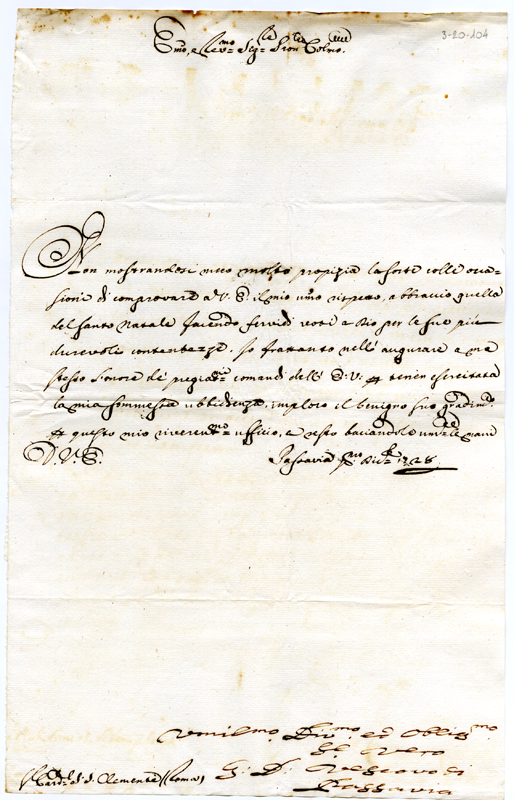 3-20-104
Emo, e Revmo Sigre Pron Colmo.
Non mostrandosi meco molto propizia la sorte colle occa-
sioni di comprovare a V. E. il mio umo rispetto, abbraccio quella
del Santo Natale facendo fervidi voti a Dio per le sue più
durevoli contentezze. Io frattanto nell' augurare a me
stesso l'onore de' pregiatmi comandi dell' E. V. p tener esercitata
la mia sommessa ubbidienza, imploro il benigno suo gradimto
p questo mio riverentmo ufficio, e resto baciandole umte le mani
D. V. E.
Passavia Pmo Dicre 1728.
Umilmo Divmo ed Obligmo
Se Vero
G. D. Vescovo di
Passavia
Card. S. Clemente (Roma)